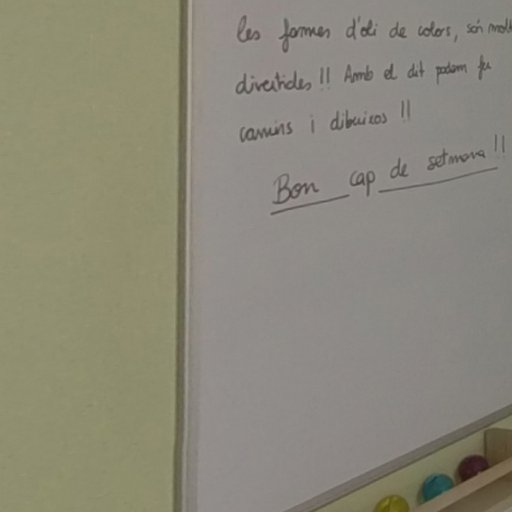 les formes d'oli de colors, són molt
divertides !! Amb el dit podem fe
camins i dibuixos !!
Bon cap de setmana !!